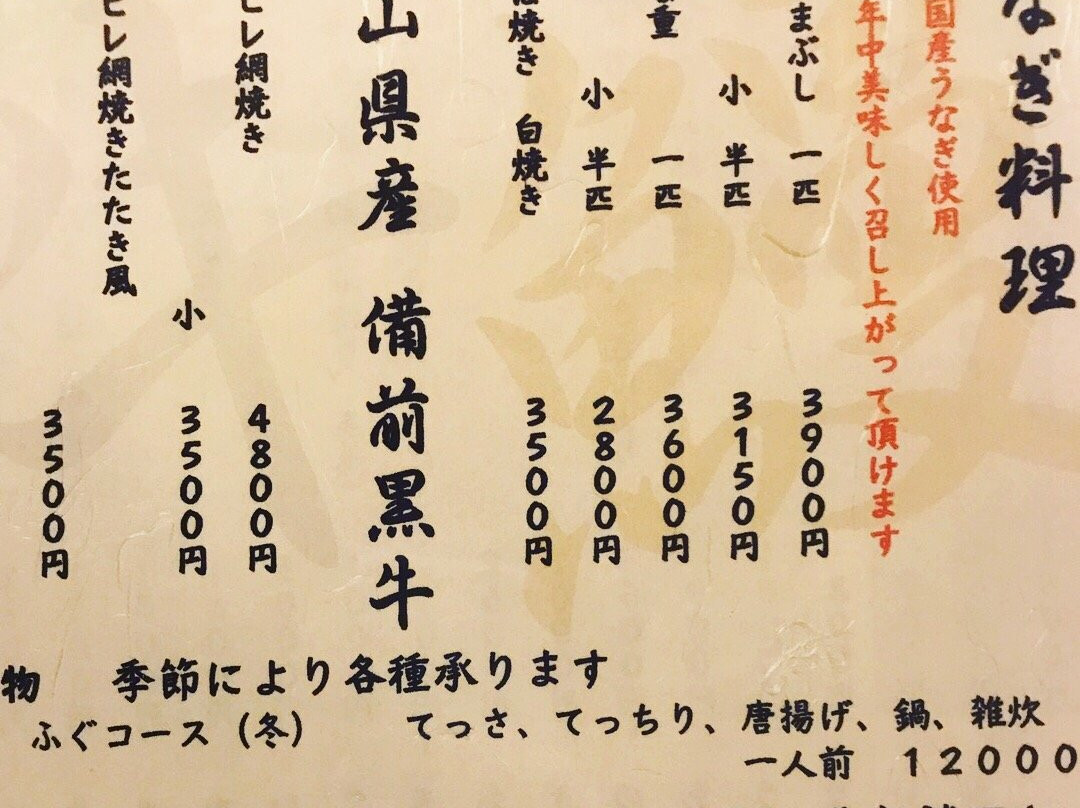 なぎ料理
国産うなぎ使用
年中美味しく召し上がって頂けます
まぶし 一匹 3900円
小 半匹 3150円
重 一匹 3600円
小 半匹 2800円
焼き 白焼き 3500円
山県産 備前黒牛
ヒレ網焼き 4800円
小 3500円
ヒレ網焼きたたき風 3500円
物 季節により各種承ります
ふぐコース(冬) てっさ、てっちり、唐揚げ、鍋、雑炊
一人前 12000